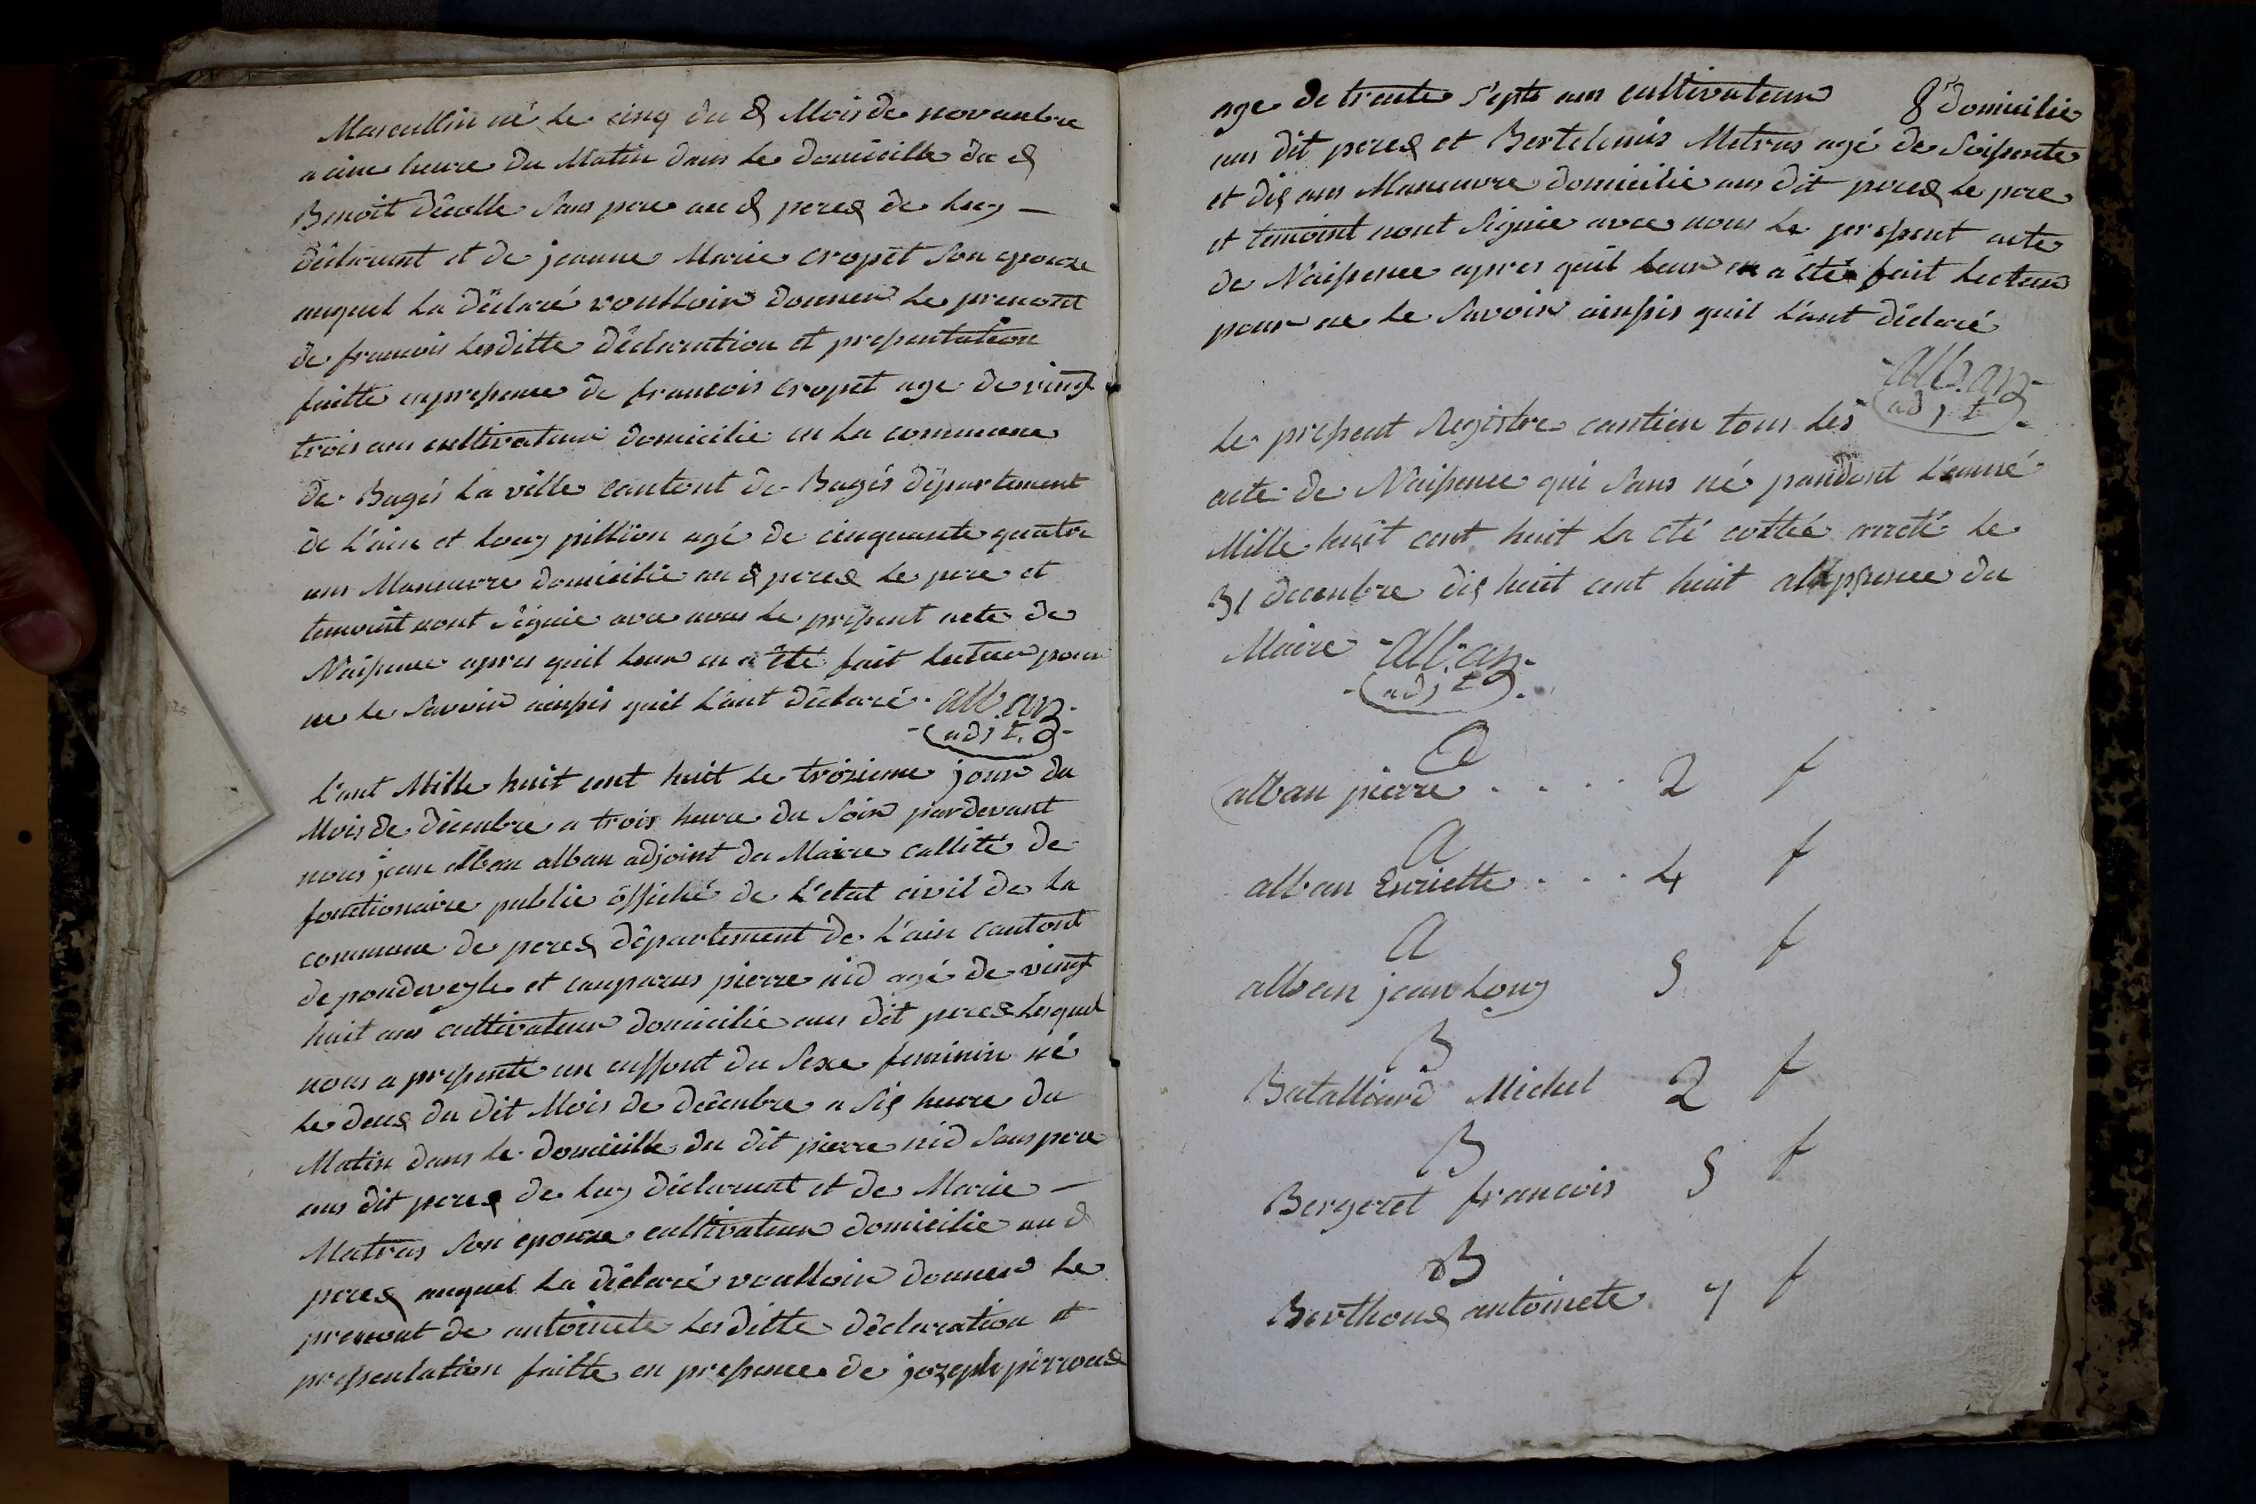 Masculin né le cinq du d Mois de novembre
a cinc heure du Matin dans le domicille du d
Benoit décolle sans pere au d perex de luy —
déclarent et de jeanne Marie cropet son epouze
auquel la déclaré voulloir donner le prenont
de francois lesditte déclaration et presentation
faitte en presence de francois cropet age de vingt
trois ans cultivateur domicilié en la commune
de Bagés la ville cantont de Bagés département
de l'ain et louy pillion agé de cinquante quatre
ans Maneuvre domicilié au d perex le pere et
temoint nont signié avec nous le present acte de
Naissence apres quil leur en a été fait lecteur pour
ne le savoir ainssis quil lont déclaré alban
adjt
L'ant Mille huit cent huit le troisieme jour du
Mois de décenbre a trois heure du soir pardevant
nous jean alban alban adjoint du Maire callité de
fonctionaire public officié de l'etat civil de la
commune de perex département de l'ain cantont
de pondeveyle et conparus pierre nid agé de vingt
huit ans cultivateur domicilié aus dit perex lesquel
nous a presenté un enffent du sexe feminin né
le deux du dit Mois de décenbre a six heure du
Matin dans le domicille du dit pierre nid sans pere
aus dit perex de luy déclarent et de Marie —
Matras son epouze cultivateur domicilié au d
perex auquel la déclaré voulloir donner le
prenont de antoinete lesditte déclaration et
presentation faitte en presence de jozeph pirroux
age de trente septs ans cultivateur 8r domicilié
aus dit perex et Bertelemis Metras agé de soissente
et dix ans Maneuvre domicilié aus dit perex le pere
et temoint nont signié avec nous le present acte
de Naissence apres quil leur en a été fait lecteur
pour ne le savoir ainssis quil lont déclaré
alban
adjt
le present Registre contien tous les
acte de Naissence qui sons né pendent l'année
Mille huit cent huit la été cottéé arreté le
31 decenbre dix huit cent huit alapsence du
Maire alban
adjt
A
alban pierre . . . . 2 f
A
alban Enriette . . . 4 f
A
alban jean louy 5 f
B
Batalliard Michel 2 f
B
Bergeret francois 5 f
B
Berthoux antoinete 7 f